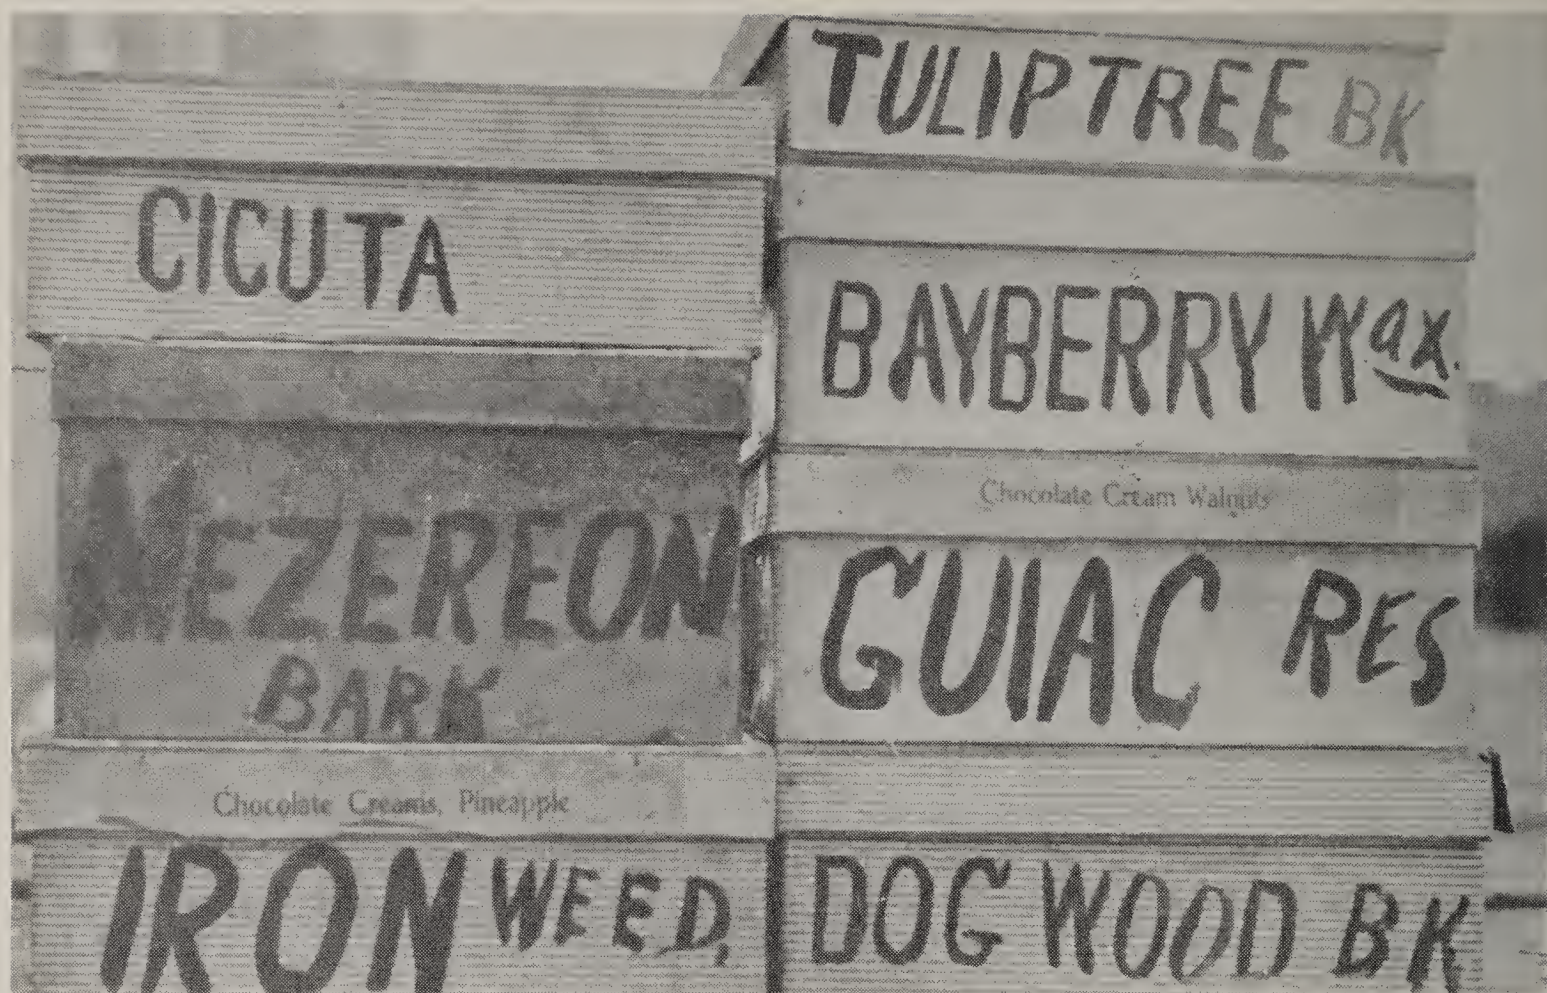 CICUTA
MEZEREON
BARK
Chocolate Creams, Pineapple
IRON WEED,
TULIPTREE BK
BAYBERRY Wax.
Chocolate Cream Walnuts
GUIAC RES
DOG WOOD BK